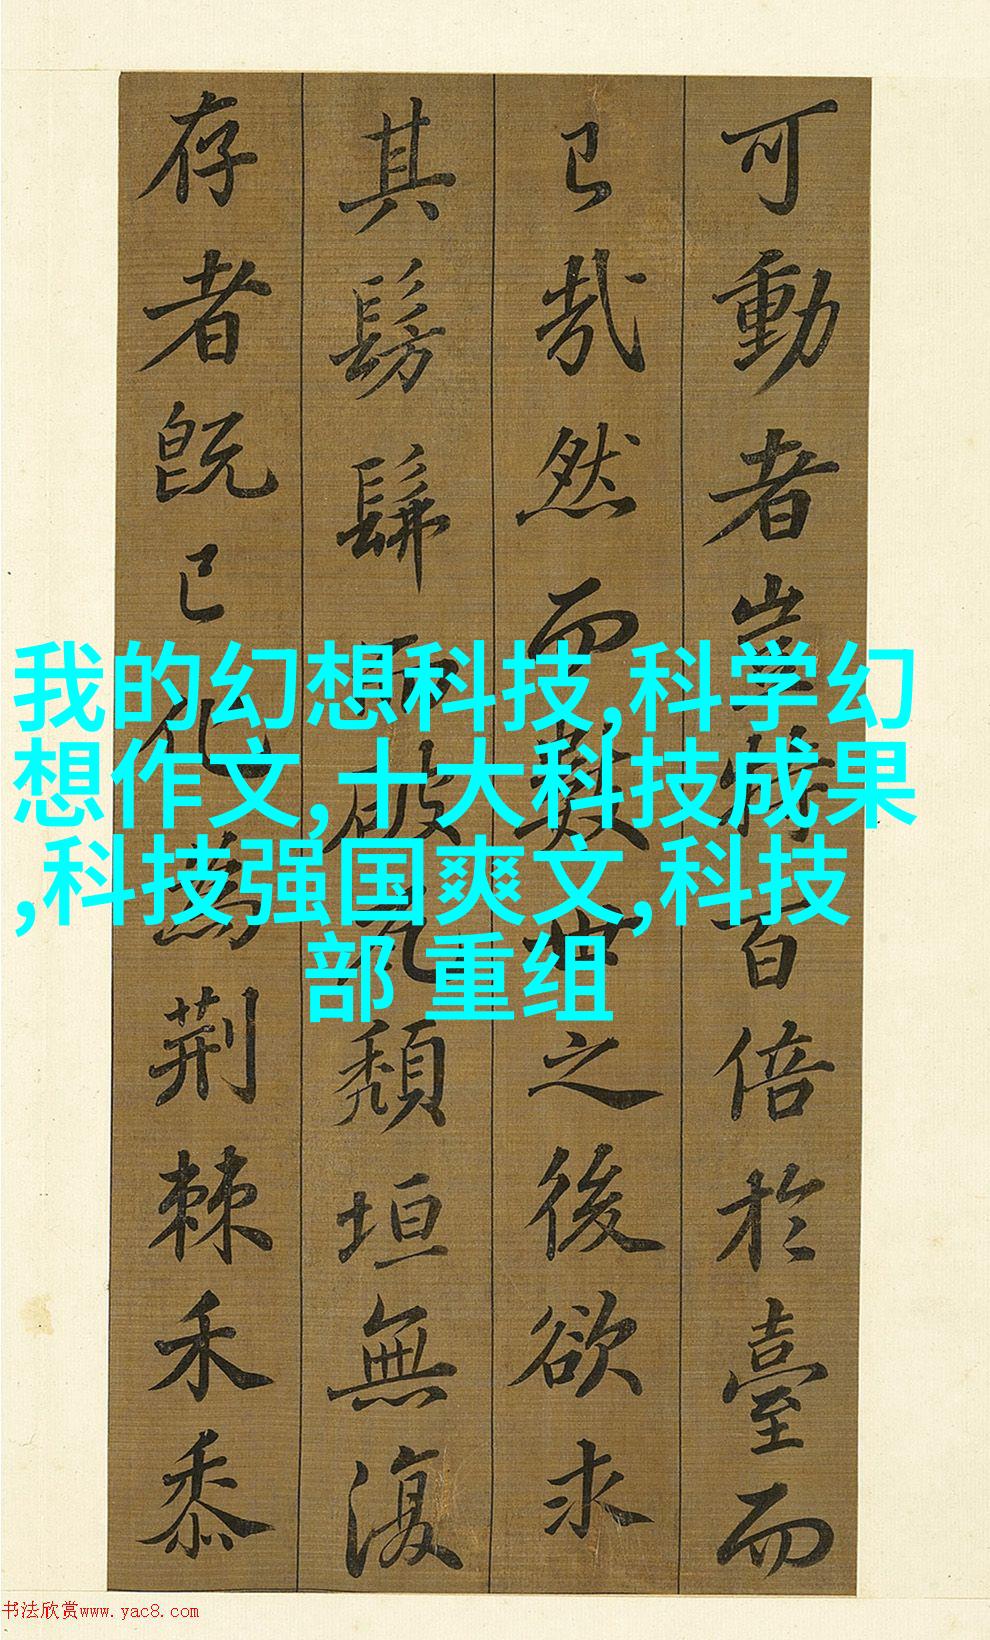 可動者豈特百倍於臺而
已哉然而數世之後欲求
其髣髴而破瓦頹垣無復
存者既已化為荆棘禾黍
我的幻想科技,科学幻
想作文,十大科技成果
,科技强国爽文,科技
部 重组
书法欣赏www.yac8.com